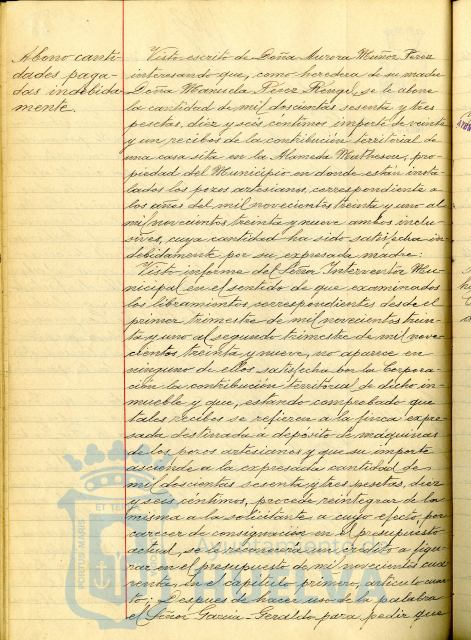 Abono canti-
dades paga-
das indebida-
mente.
Visto escrito de Doña Aurora Muñoz Perez
interesando que, como heredera de su madre
Doña Manuela Pérez Rengel, se le abone
la cantidad de mil doscientas sesenta y tres
pesetas, diez y seis céntimos importe de veinte
y un recibos de la contribución territorial de
una casa sita en la Alameda Mathesor, pro-
piedad del Municipio en donde están insta-
lados los pozos artesianos, correspondiente a
los años del mil novecientos treinta y uno al
mil novecientos treinta y nueve ambos inclu-
sives, cuya cantidad ha sido satisfecha in-
debidamente por su expresada madre:
Visto informe del Señor Interventor Mu-
nicipal en el sentido de que examinados
los libramientos correspondientes desde el
primer trimestre de mil novecientos trein-
ta y uno al segundo trimestre de mil nove-
cientos treinta y nueve, no aparece en
ninguno de ellos satisfecha por la Corpora-
ción la contribución territorial de dicho in-
mueble y que, estando comprobado que
tales recibos se refieren a la finca expre-
sada destinada a depósito de máquinas
de los pozos artesianos y que su importe
asciende a la expresada cantidad de
mil doscientas sesenta y tres pesetas, diez
y seis céntimos, procede reintegrar de la
misma a la solicitante a cuyo efecto, por
carecer de consignación en el presupuesto
actual, se reconocerá un crédito a figu-
rar en el presupuesto de mil novecientos cua-
renta, en el capítulo primero, artículo cuar-
to; Después de hacer uso de la palabra
el Señor García-Geraldo para pedir que
PORTUS MARIS
ET TERRAE
Ayuntamiento de